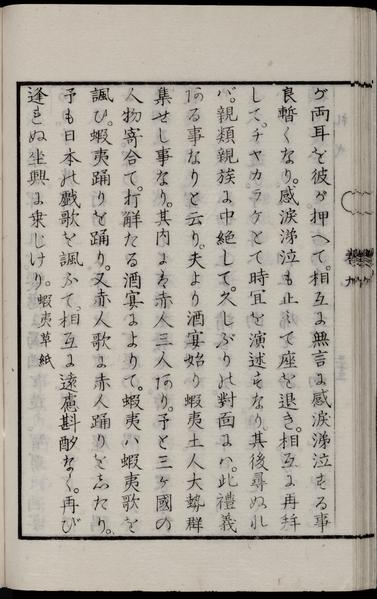 ガ両耳を彼が押へて。相互に無言に感涙涕泣する事
良暫くなり。感涙涕泣も止て座を退き。相互に再拝
して。チヤカラケとて時冝を演述るなり。其後尋ぬれ
バ。親類親族に中絶して。久しぶりの対面にハ。此禮義
ある事なりと云り。夫より酒宴始り蝦夷土人大勢群
集せし事なり。其内にも赤人三人あり。予と三ヶ國の
人物寄合て。打解たる酒宴によりて。蝦夷ハ蝦夷歌を
諷ひ。蝦夷踊りを踊り。又赤人歌に赤人踊りをしたり。
予も日本の戯歌を諷ふて。相互に遠慮斟酌なく。再び
逢きぬ坐興に乗じけり。蝦夷草紙